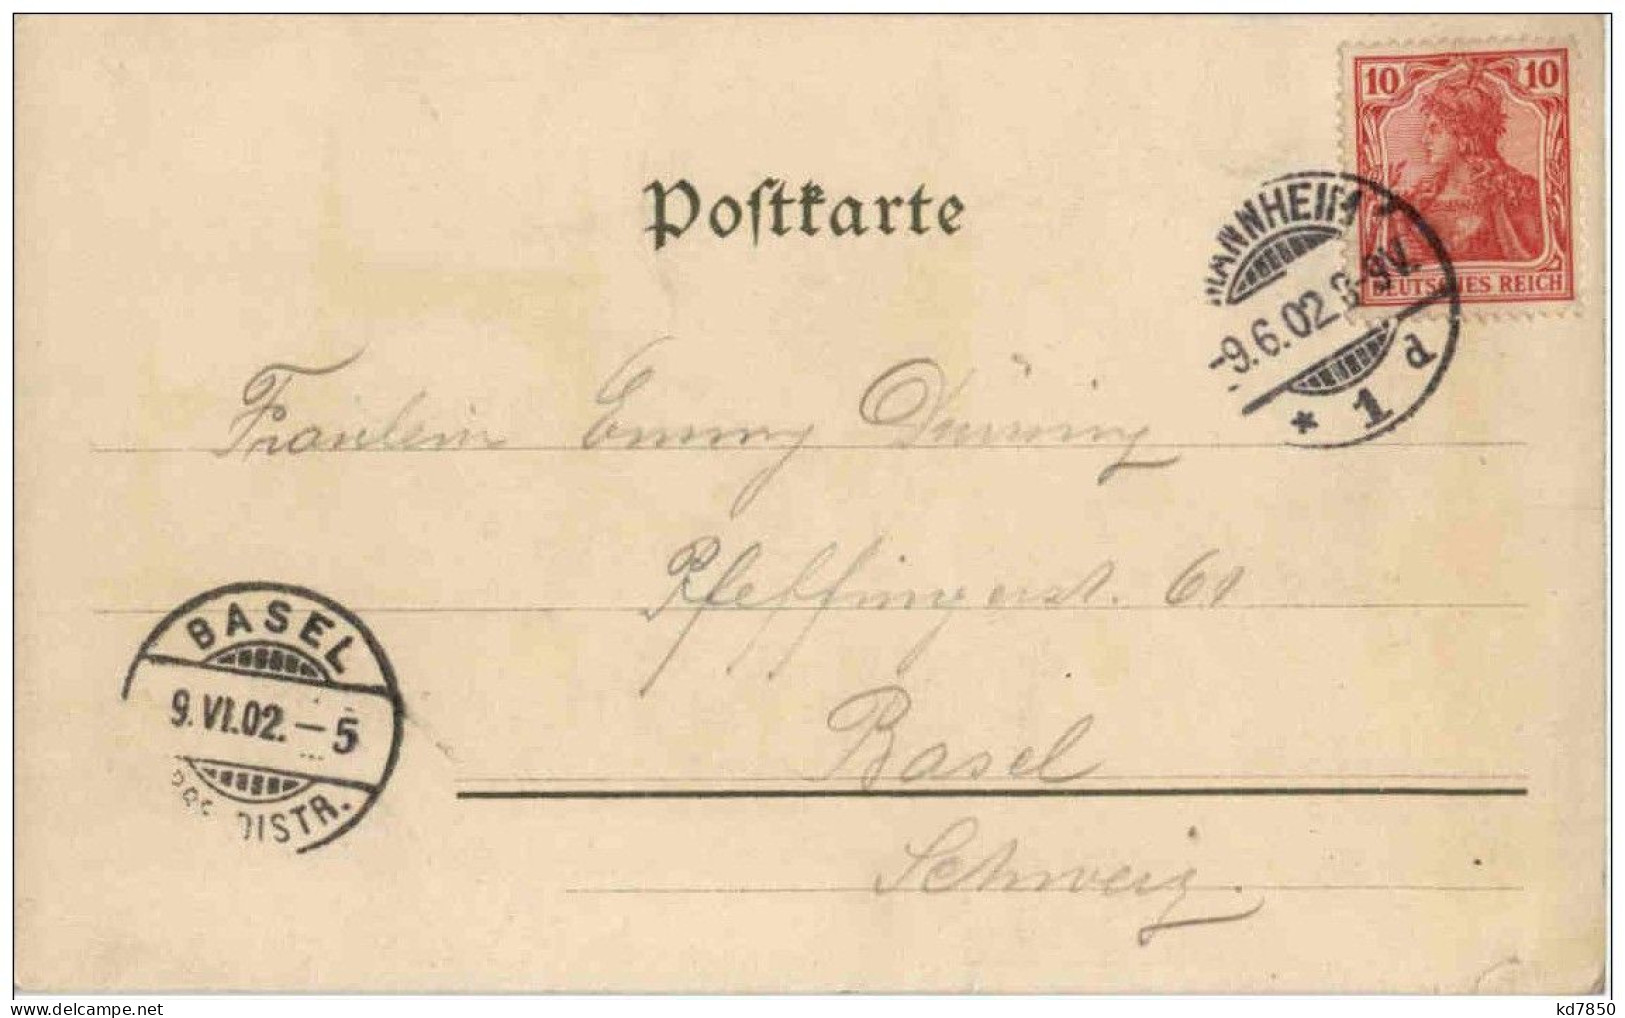 10 10
DEUTSCHES REICH
MANNHEIM 2
-9.6.02. 8-9V.
* 1 d
Postkarte
Fräulein Emmy Düring
Pfeffingerst. 61
Basel
Schweiz.
BASEL
9.VI.02. – 5
DISTR.
delcampe.net
kd7850